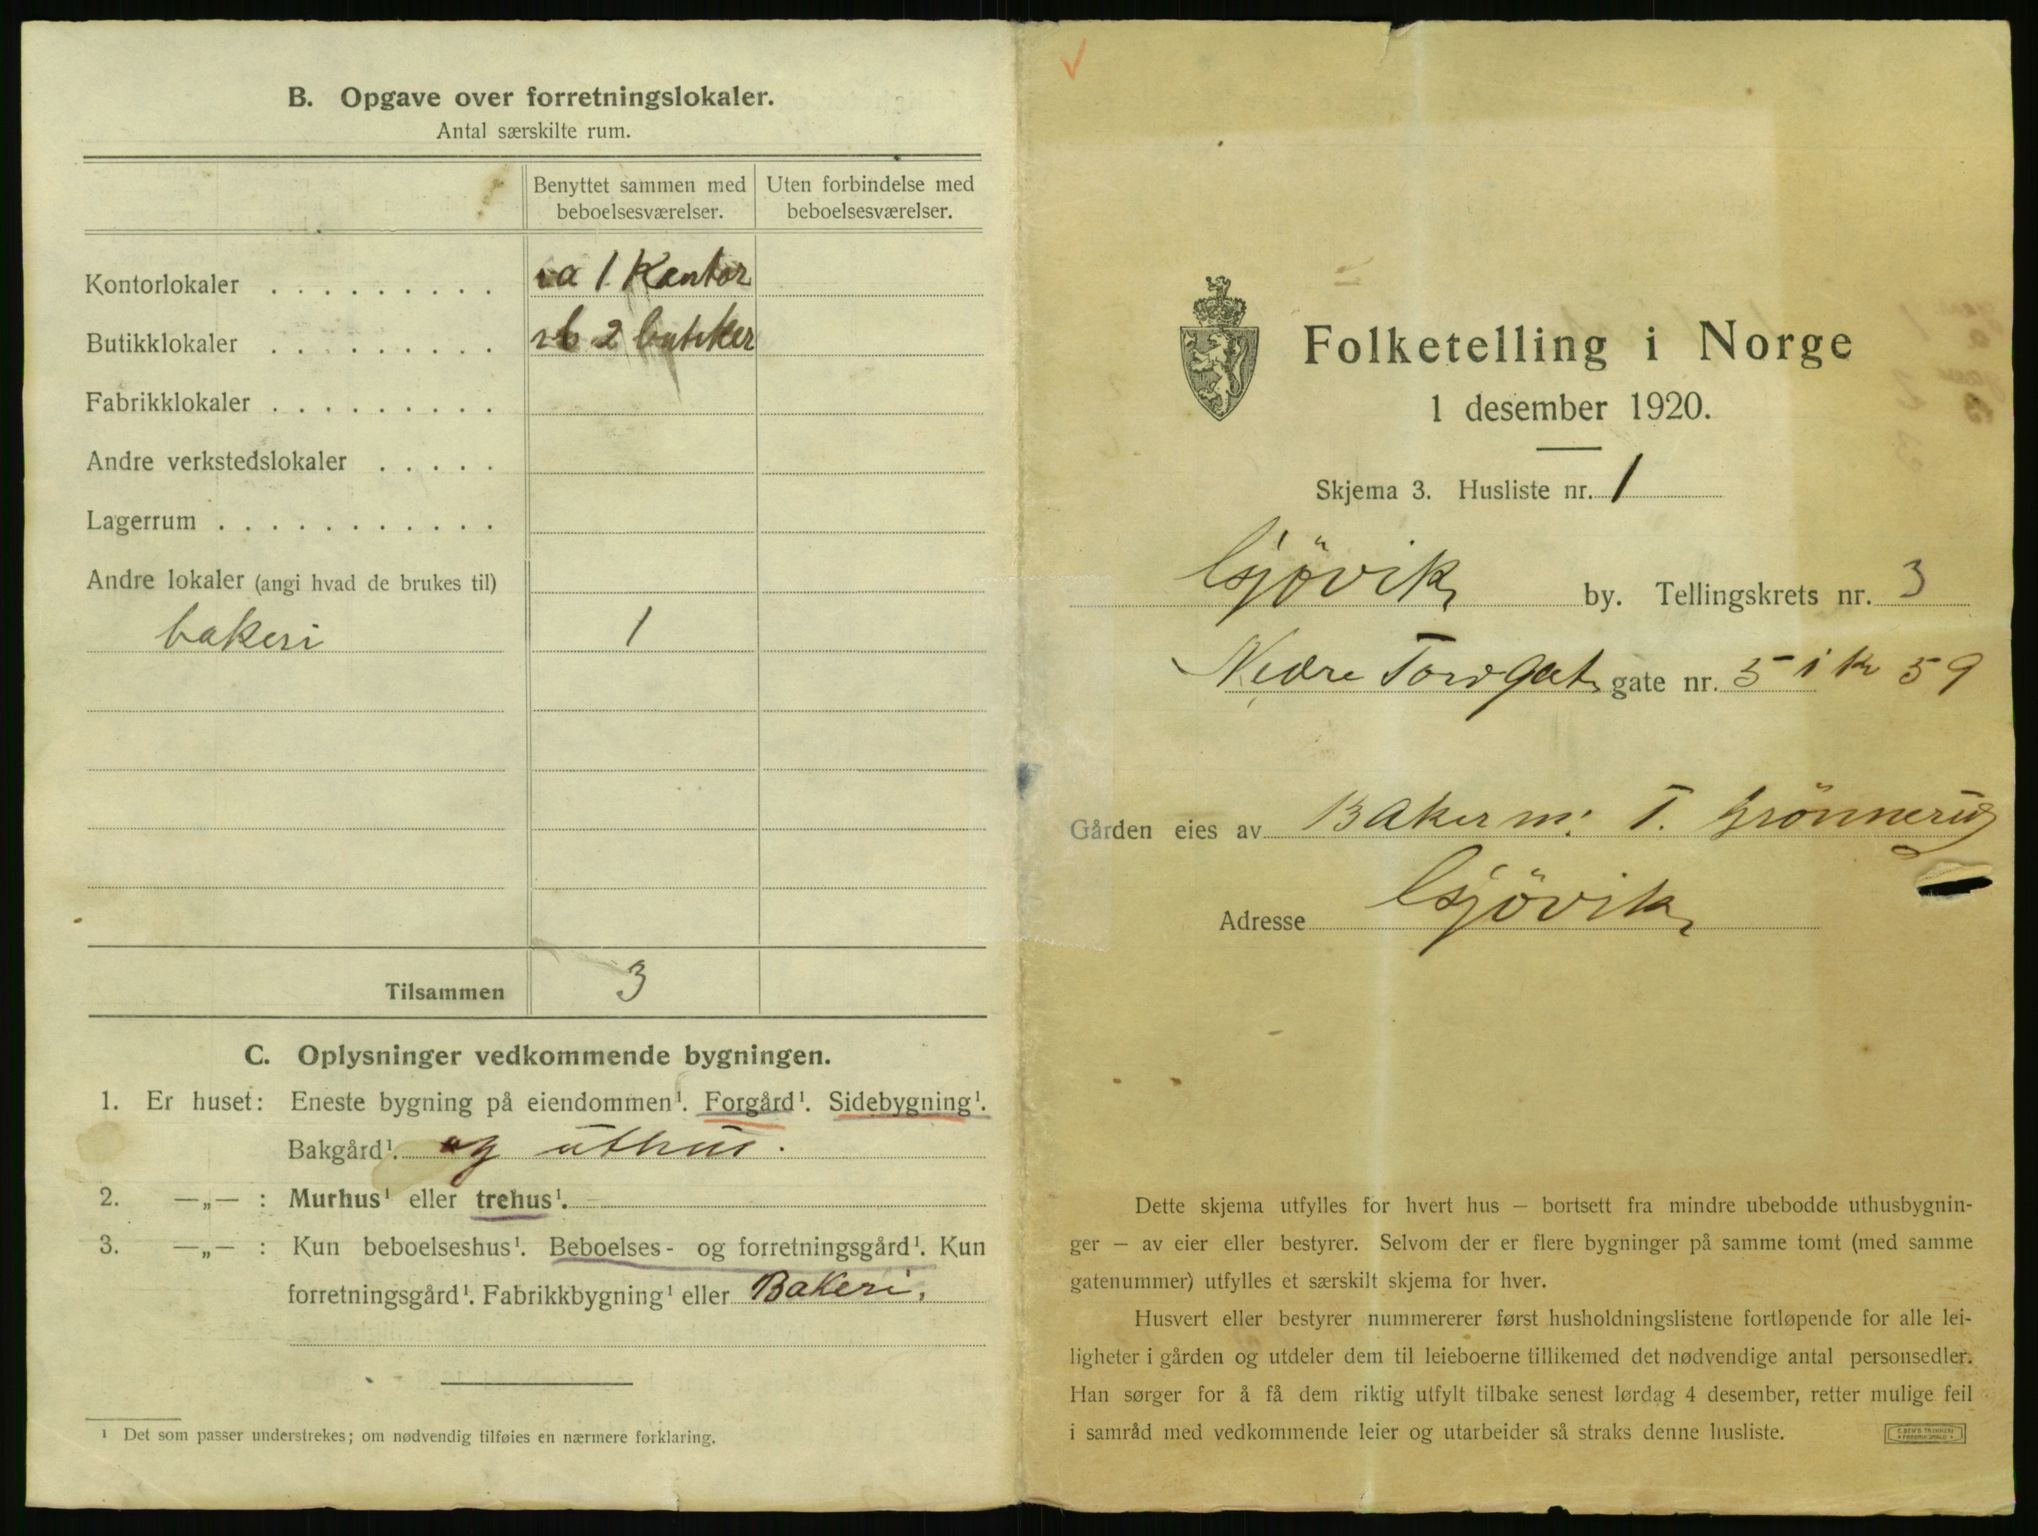 B. Opgave over forretningslokaler.
Antal særskilte rum.
Benyttet sammen med beboelsesværelser.
Uten forbindelse med beboelsesværelser.
Kontorlokaler . . . . . . . . . a 1 Kontor
Butikklokaler . . . . . . . . . b 2 butiker
Fabrikklokaler . . . . . . . . .
Andre verkstedslokaler . . . . .
Lagerrum . . . . . . . . . . . .
Andre lokaler (angi hvad de brukes til)
bakeri 1
Tilsammen 3
C. Oplysninger vedkommende bygningen.
1. Er huset: Eneste bygning på eiendommen¹. Forgård¹. Sidebygning¹.
Bakgård¹. og uthus.
2. —„— : Murhus¹ eller trehus¹.
3. —„— : Kun beboelseshus¹. Beboelses- og forretningsgård¹. Kun
forretningsgård¹. Fabrikkbygning¹ eller Bakeri.
¹ Det som passer understrekes; om nødvendig tilføies en nærmere forklaring.
Folketelling i Norge
1 desember 1920.
Skjema 3. Husliste nr. 1
Gjövik by. Tellingskrets nr. 3
Nedre Torvgat gate nr. 5 i k 59
Gården eies av Bakerm: T. Grönnerud
Adresse Gjövik
Dette skjema utfylles for hvert hus — bortsett fra mindre ubebodde uthusbygnin-
ger — av eier eller bestyrer. Selvom der er flere bygninger på samme tomt (med samme
gatenummer) utfylles et særskilt skjema for hver.
Husvert eller bestyrer nummererer først husholdningslistene fortløpende for alle lei-
ligheter i gården og utdeler dem til leieboerne tillikemed det nødvendige antal personsedler.
Han sørger for å få dem riktig utfylt tilbake senest lørdag 4 desember, retter mulige feil
i samråd med vedkommende leier og utarbeider så straks denne husliste.